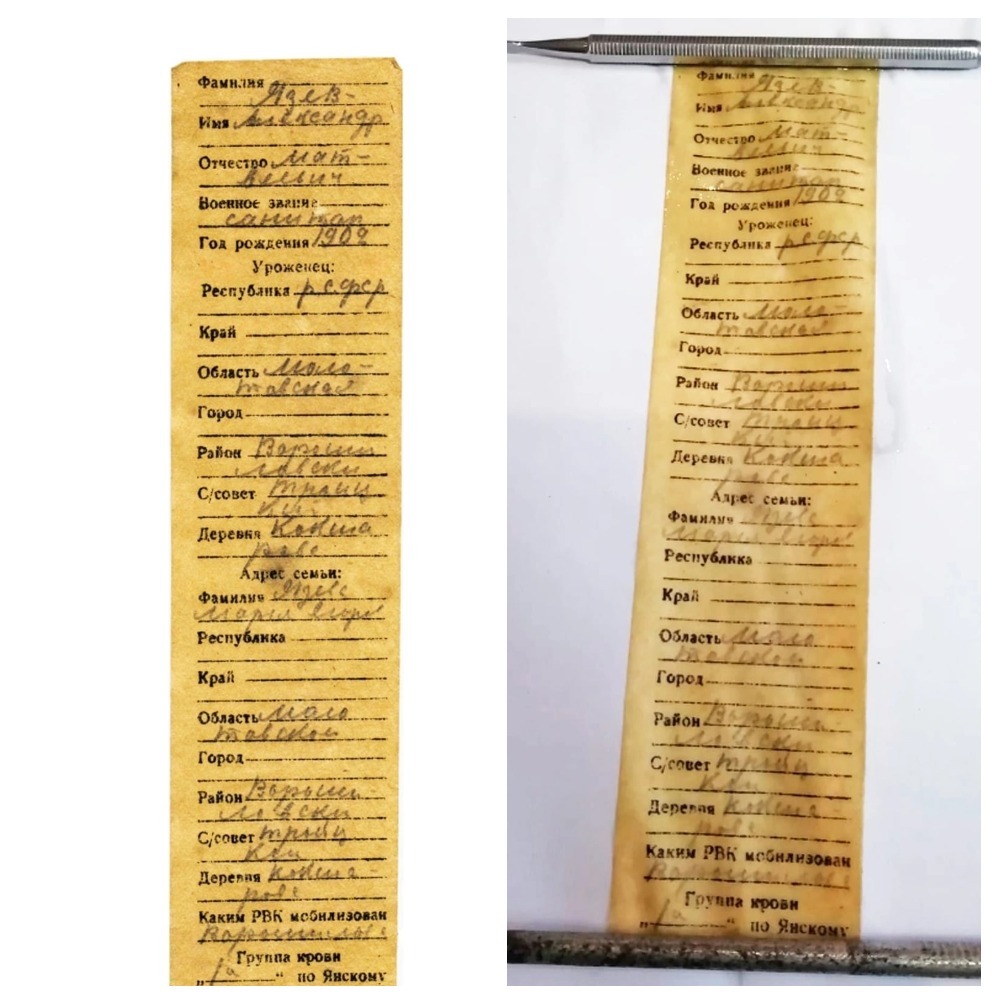 Фамилия Язев-
Имя Александр
Отчество Мат-
веевич
Военное звание
санитар
Год рождения 1902
Уроженец:
Республика рсфср
Край
Область Моло-
товская
Город
Район Вороши
ловски
С/совет троиц
кий
Деревня Кокша
рово
Адрес семьи:
Фамилия Язева
Мария
Республика
Край
Область Моло
товской
Город
Район Вороши
ловски
С/совет троиц
Кий
Деревня Кокша-
рово
Каким РВК мобилизован
Группа крови
„ “ по Янскому
Фамилия Язев-
Имя Александр
Отчество Мат-
веевич
Военное звание
санитар
Год рождения 1902
Уроженец:
Республика рсфср
Край
Область Моло-
товская
Город
Район Вороши
ловски
С/совет троиц
кий
Деревня Кокша
рово
Адрес семьи:
Фамилия Язева
Мария
Республика
Край
Область Моло
товской
Город
Район Вороши
ловски
С/совет троиц
Кий
Деревня Кокша-
рово
Каким РВК мобилизован
Группа крови
„ “ по Янскому